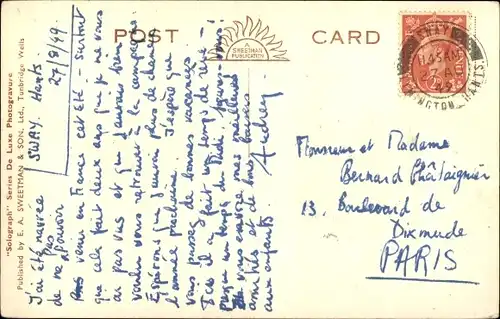 POST CARD
A
SWEETMAN
PUBLICATION
"Solograph" Series De Luxe Photogravure
Published by E. A. SWEETMAN & SON, Ltd., Tunbridge Wells
SWAY. Hants
27/8/49
J'ai été navrée
de ne pas pouvoir
venir en France cet été - surtout
que cela fait deux ans que je ne vous
ai pas vus et que j'aurais bien
voulu vous retrouver à la campagne
Espérons que j'aurai plus de chance
l'année prochaine. J'espère que
vous passez de bonnes vacances
Ici il a fait un temps de rêve -
presque un temps du Midi, figurez-vous!
Je vous envoie mes meilleures
amitiés et de bons baisers
aux enfants Audrey
Monsieur et Madame
Bernard Châtaignier
13, Boulevard de
Dixmude
PARIS
SWAY
LYMINGTON, HANTS.